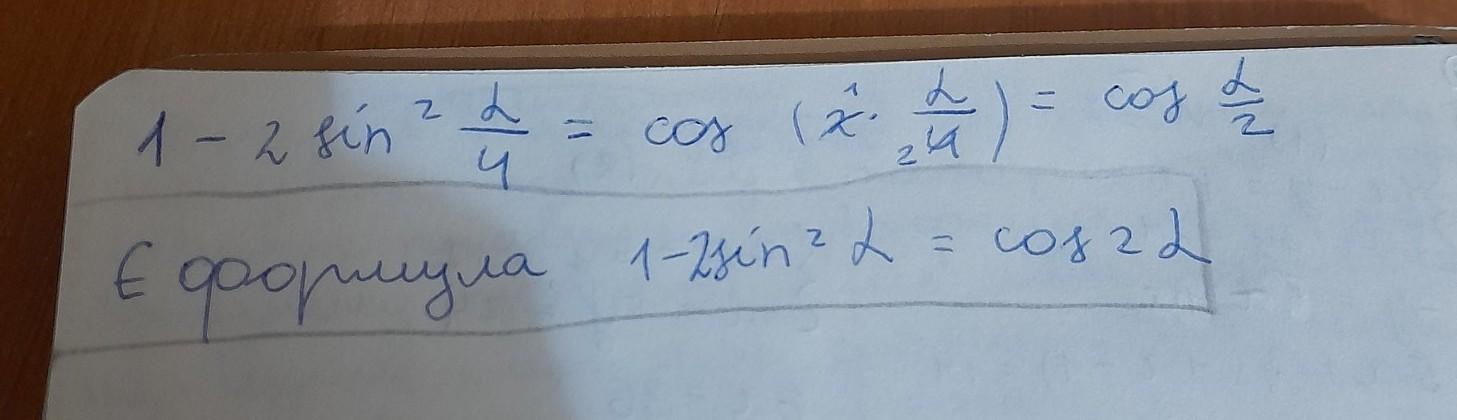 1 - 2 sin² α/4 = cos (2¹ · α/4₂) = cos α/2
Є формула 1-2sin² α = cos 2α